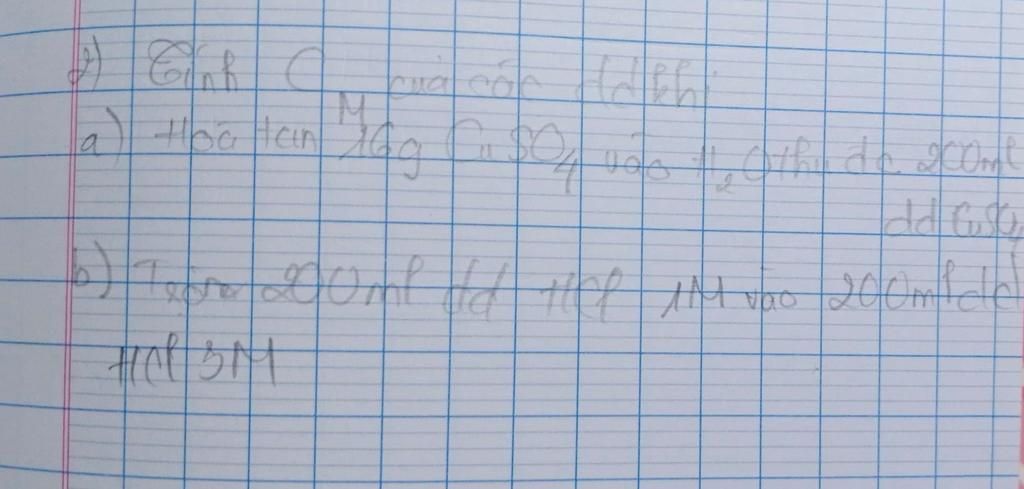 2) Tính C_M của các dd khi
a) Hoà tan 16g CuSO4 vào H2O thu đc 200ml
dd CuSO4
b) Trộn 200ml dd HCl 1M vào 200ml dd
HCl 3M